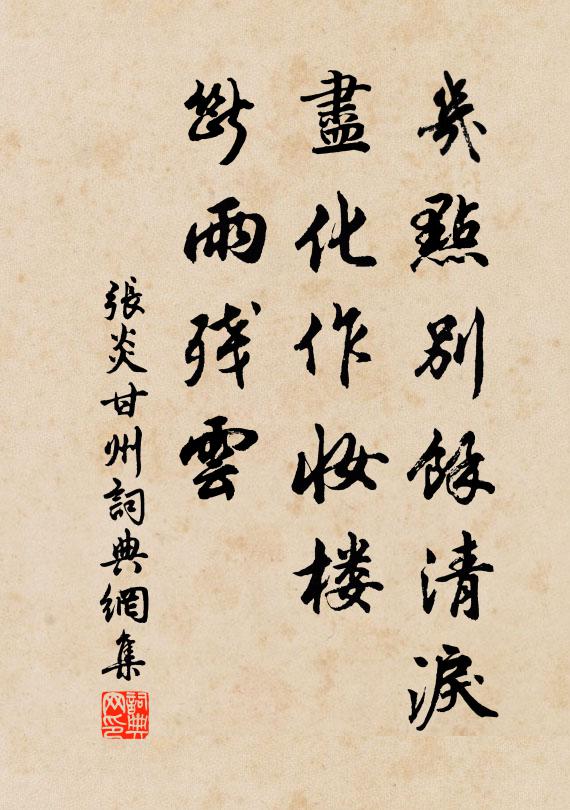 幾點別餘清淚
盡化作妝楼
斷雨殘雲
張炎甘州詞典網集
詞典网印